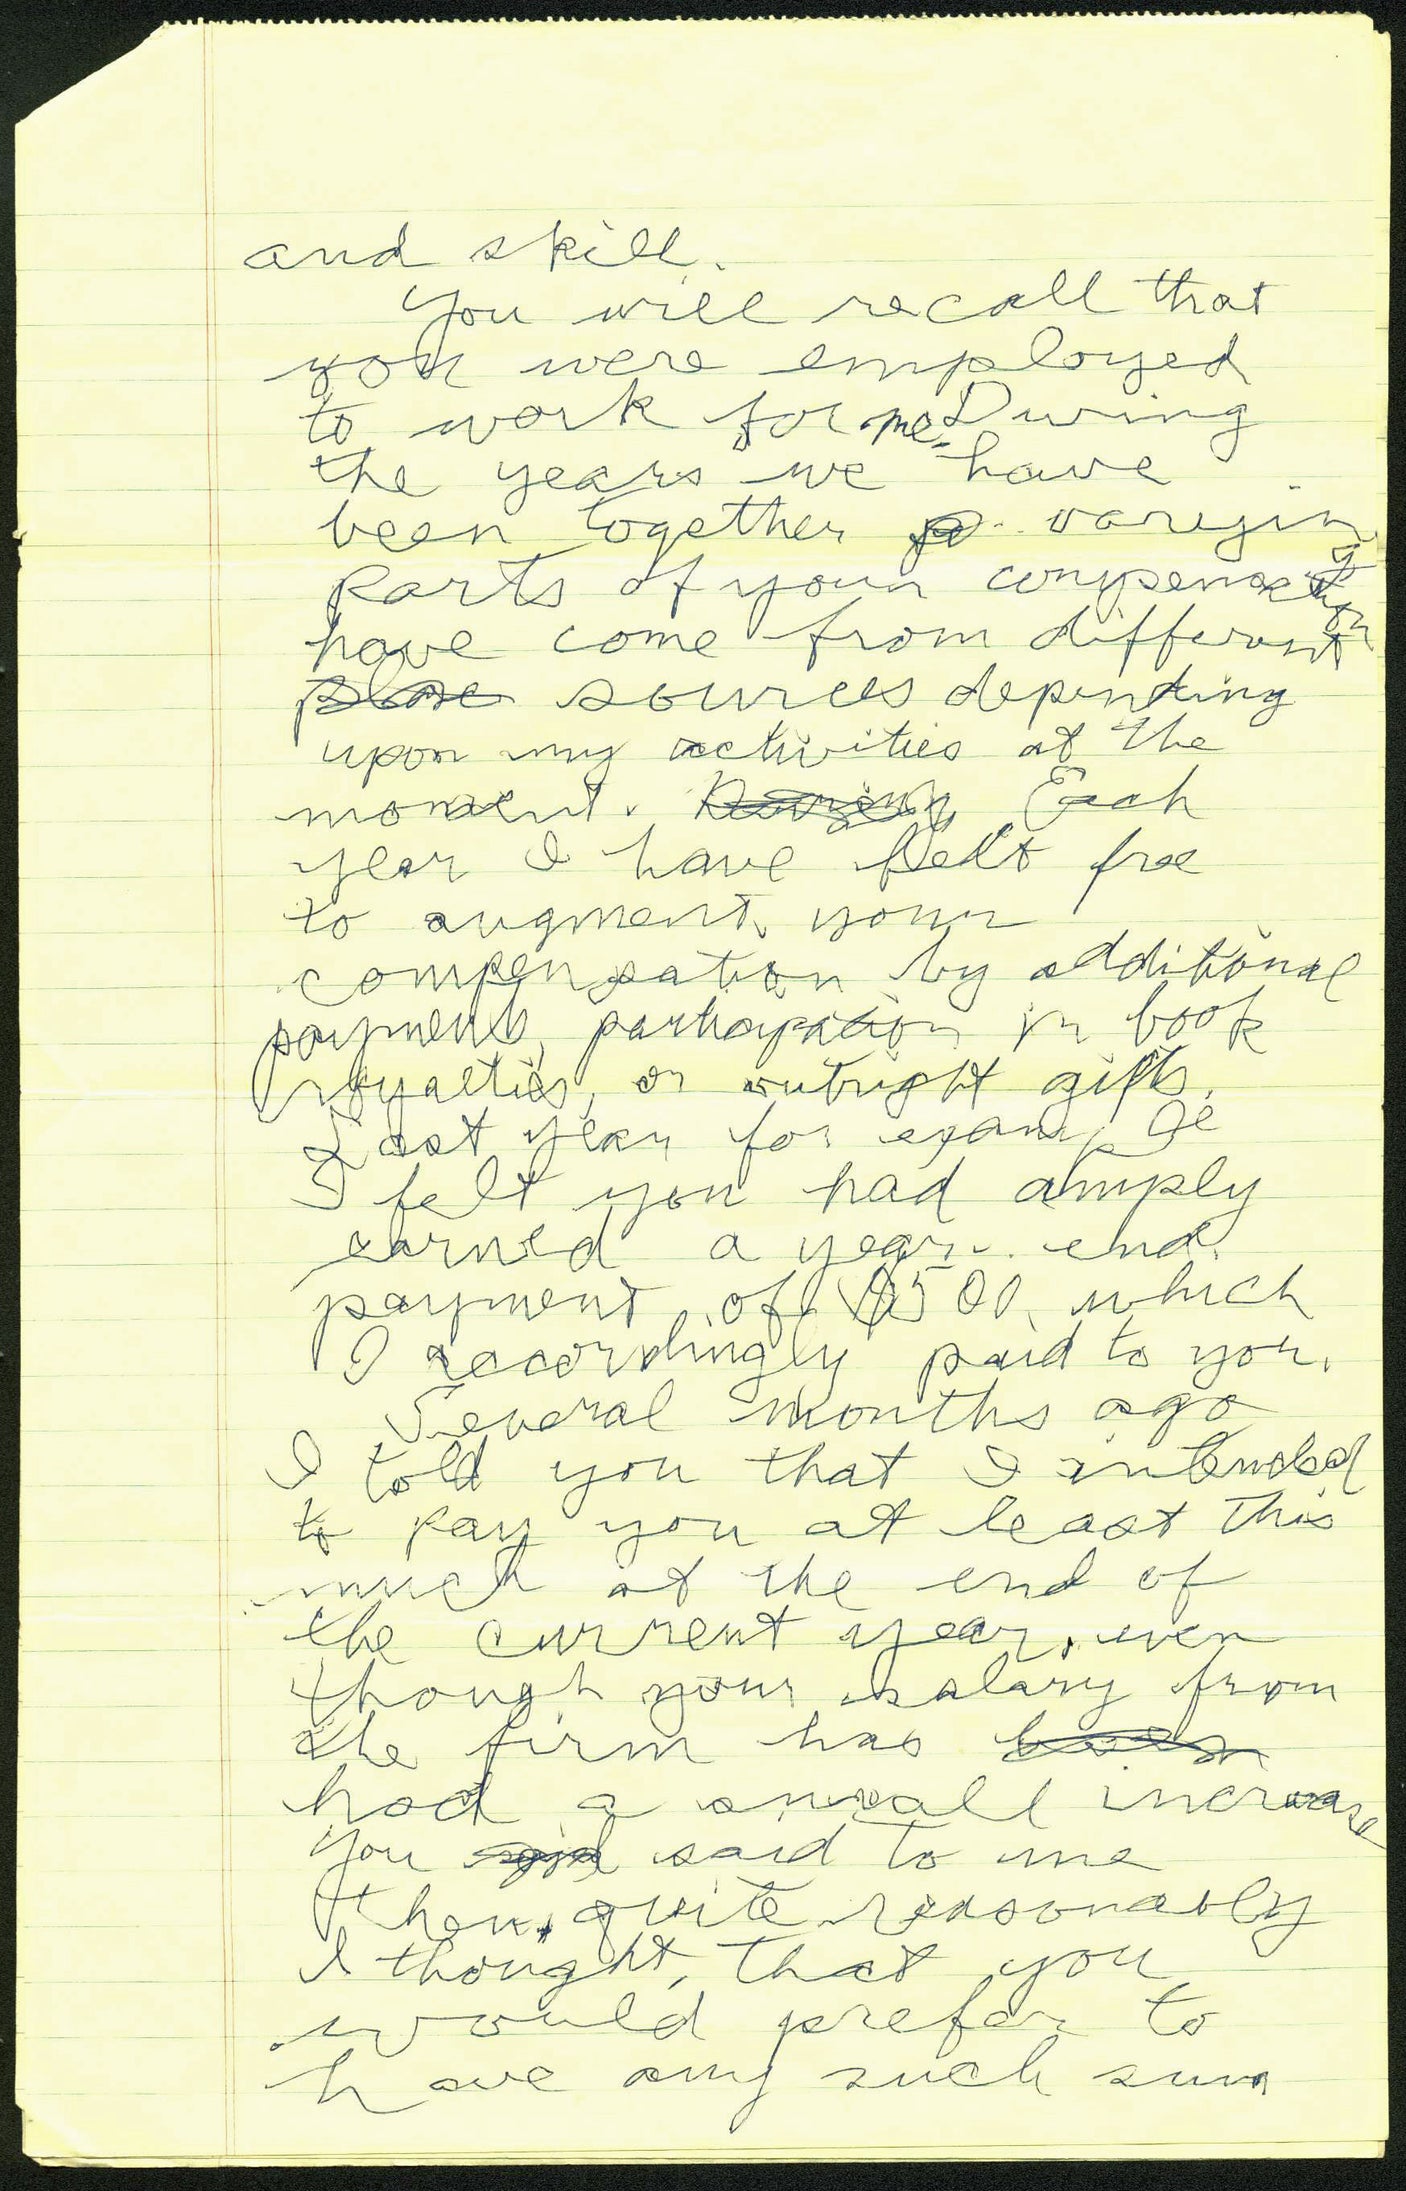 and skill.
You will recall that
you were employed
to work for me. During
the years we have
been together varying
parts of your compensation
have come from different
sources depending
upon my activities at the
moment. Each
year I have felt free
to augment your
compensation by additional
payments, participation in book
royalties, or outright gifts.
Last year for example
I felt you had amply
earned a year-end
payment of $500, which
I accordingly paid to you.
Several months ago
I told you that I intended
to pay you at least this
much at the end of
the current year, even
though your salary from
the firm has been
had a small increase
You said said to me
then, quite reasonably
I thought, that you
would prefer to
have any such sum